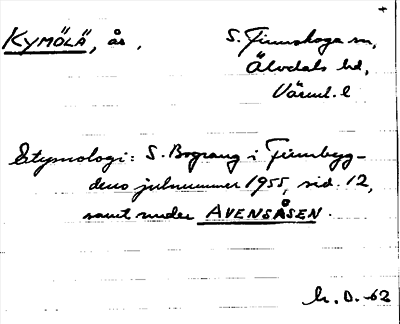 +
KYMÖLÄ, ås, S. Finnskoga sn,
Älvdals hd,
Värml. l
Etymologi: S. Bograng i Finnbyg-
dens julnummer 1955, sid. 12,
samt under AVENSÅSEN.
h. D. -62